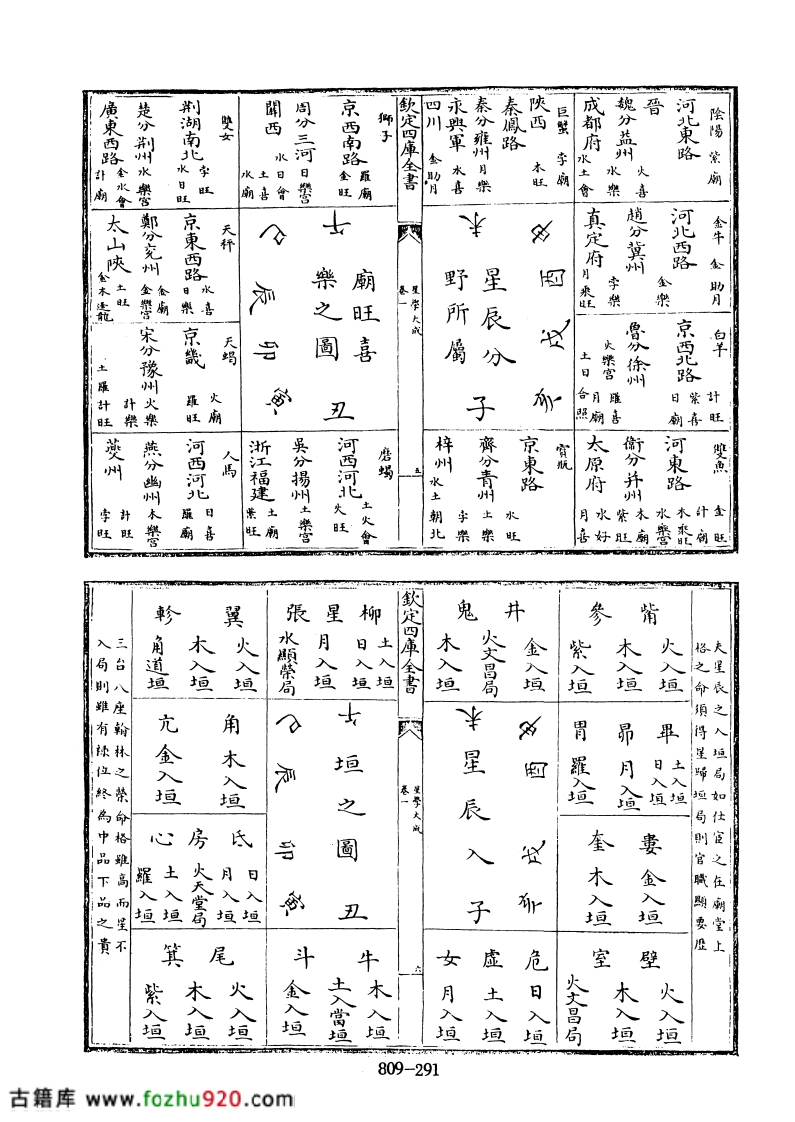 陰陽 紫廟
河北東路
晉 火喜
魏分益州 水樂
成都府 水土會
巨蟹 孛廟
陝西 木旺
秦鳳路
秦分雍州 月樂
永興軍 水喜
四川 金助月
欽定四庫全書
獅子
京西南路 羅廟 金旺
周分三河 日樂宮
水日會
關西 土喜 水廟
雙女
荆湖南北 孛旺 水日旺
楚分荆州 水樂宮
金水會
廣東西路 計廟
金牛 金助月
河北西路
趙分冀州 金樂 孛樂
真定府 月來旺
未 申 酉 戌 亥 子
星辰分
野所屬
星學大成
卷一
五
午 巳 辰 卯 寅 丑
廟旺喜
樂之圖
天秤
京東西路 水喜 日樂
鄭分兗州 金廟 金樂宮
太山陝 土旺
金木逢龍
白羊 計旺
京西北路 紫喜 日廟
魯分徐州 羅喜 月廟
火樂宮
土日合照
天蝎
京畿 火廟 羅旺
宋分豫州 火樂 計樂
土羅計旺
雙魚 金旺
河東路 計廟 木來旺
水樂宮
衞分并州 木廟 紫旺
太原府 水好 月喜
寳瓶
京東路 水旺
齊分青州 土樂 孛樂
梓州 水土朝北
磨蝎
河西河北 土火會 火旺
吳分揚州 土樂宮
浙江福建 土廟 紫旺
人馬
河西河北 日喜 羅廟
燕分幽州 木樂宮 計旺
燹州 孛旺
夫星辰之入垣局如仕宦之在廟堂上
格之命須得星歸垣局則官職顯要歷
觜 參
火入垣 木入垣 紫入垣
井 鬼
金入垣 火文昌局 木入垣
欽定四庫全書
柳 星 張
土入垣 日入垣 月入垣 水顯榮局
翼 軫
火入垣 木入垣 角道垣
畢 昴 胃
土入垣 日入垣 月入垣 羅入垣
未 申 酉 戌 亥 子
星辰入
星學大成
卷一
六
午 巳 辰 卯 寅 丑
垣之圖
角 亢
木入垣 金入垣
婁 奎
金入垣 木入垣
氐 房 心
日入垣 月入垣 火天堂局 土入垣 羅入垣
壁 室
火入垣 木入垣 火文昌局
危 虛 女
日入垣 土入垣 月入垣
牛 斗
木入垣 土入當垣 金入垣
尾 箕
火入垣 木入垣 紫入垣
三台八座翰林之榮命格雖高而星不
入局則雖有祿位終為中品下品之貴
809-291
古籍库 www.fozhu920.com